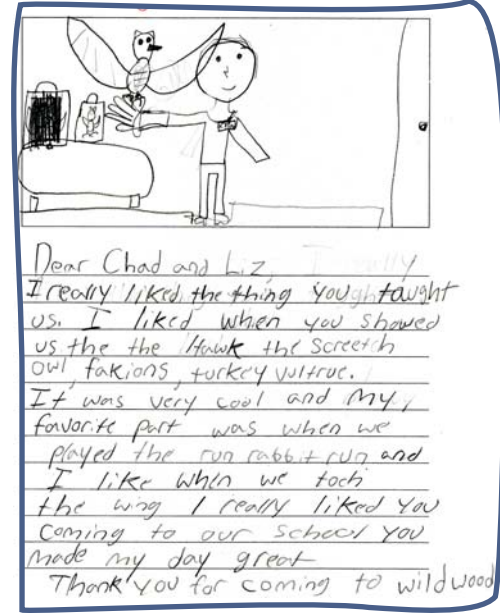 Dear Chad and Liz,
I really liked the thing you taught
us. I liked when you showed
us the the Hawk the Screetch
owl, fakions, turkey vultrue.
It was very cool and My,
favorite part was when we
played the run rabbit run and
I like when we toch
the wing I really liked You
Coming to our School You
made my day great
Thank You for coming to wildwood